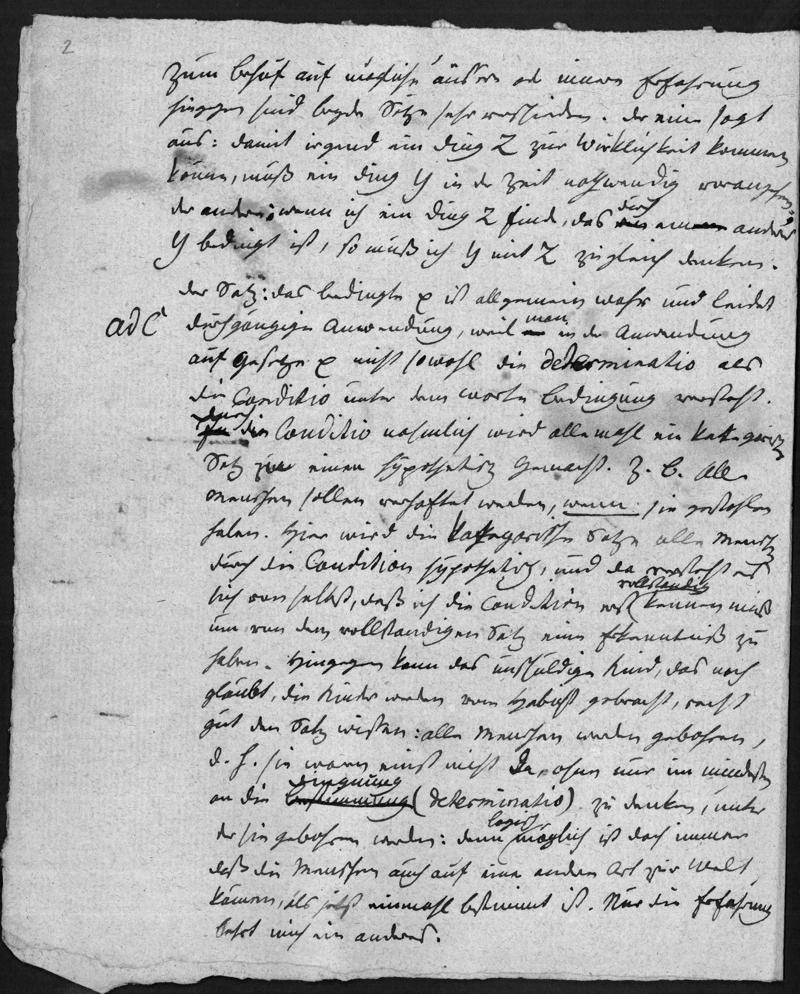 2
zum behuf auf mögliche äussere od innere Erfahrung
hingegen sind beyde Sätze sehr verschieden. Der eine sagt
aus: damit irgend ein Ding Z zur Wirklichkeit kommen
könne, muß ein Ding Y in der Zeit nothwendig vorangehen,
der andere: wenn ich ein Ding Z finde, das durch ein anderes
Y bedingt ist, so muß ich Y mit Z zugleich denken.
der Satz: das bedingte ist allgemein wahr und leidet
ad C durchgängige Anwendung, weil man in der Anwendung
auf Gesetze nicht sowohl die determinatio als
die Conditio unter dem worte bedingung versteht.
durch die Conditio nehmlich wird allemahl ein kategorisch
Satz zu einem hypothetisch gemacht. Z. B. Alle
Menschen sollen verhaftet werden, wenn sie gestohlen
haben. Hier wird die kategorische Satz alle Mensch
durch die Condition hypothetisch, und da versteht es
sich von selbst, daß ich die Condition erst vollständig kennen muß
um von dem vollständigen Satz eine Erkenntniß zu
haben. Hingegen kann das unschuldige Kind, das noch
glaubt, die Kinder werden vom Habicht gebracht, recht
gut den Satz wissen: alle Menschen werden gebohren,
d. h. sie waren einst nicht da, ohne nur im mindesten
an die dingnung bestimmung (determinatio) zu denken, unter
der sie gebohren werden: denn logisch möglich ist doch immer
daß die Menschen auch auf eine andere Art zur Welt
kämen, als jetzt einmahl bestimmt ist. Nur die Erfahrung
lehrt mich ein anderes.